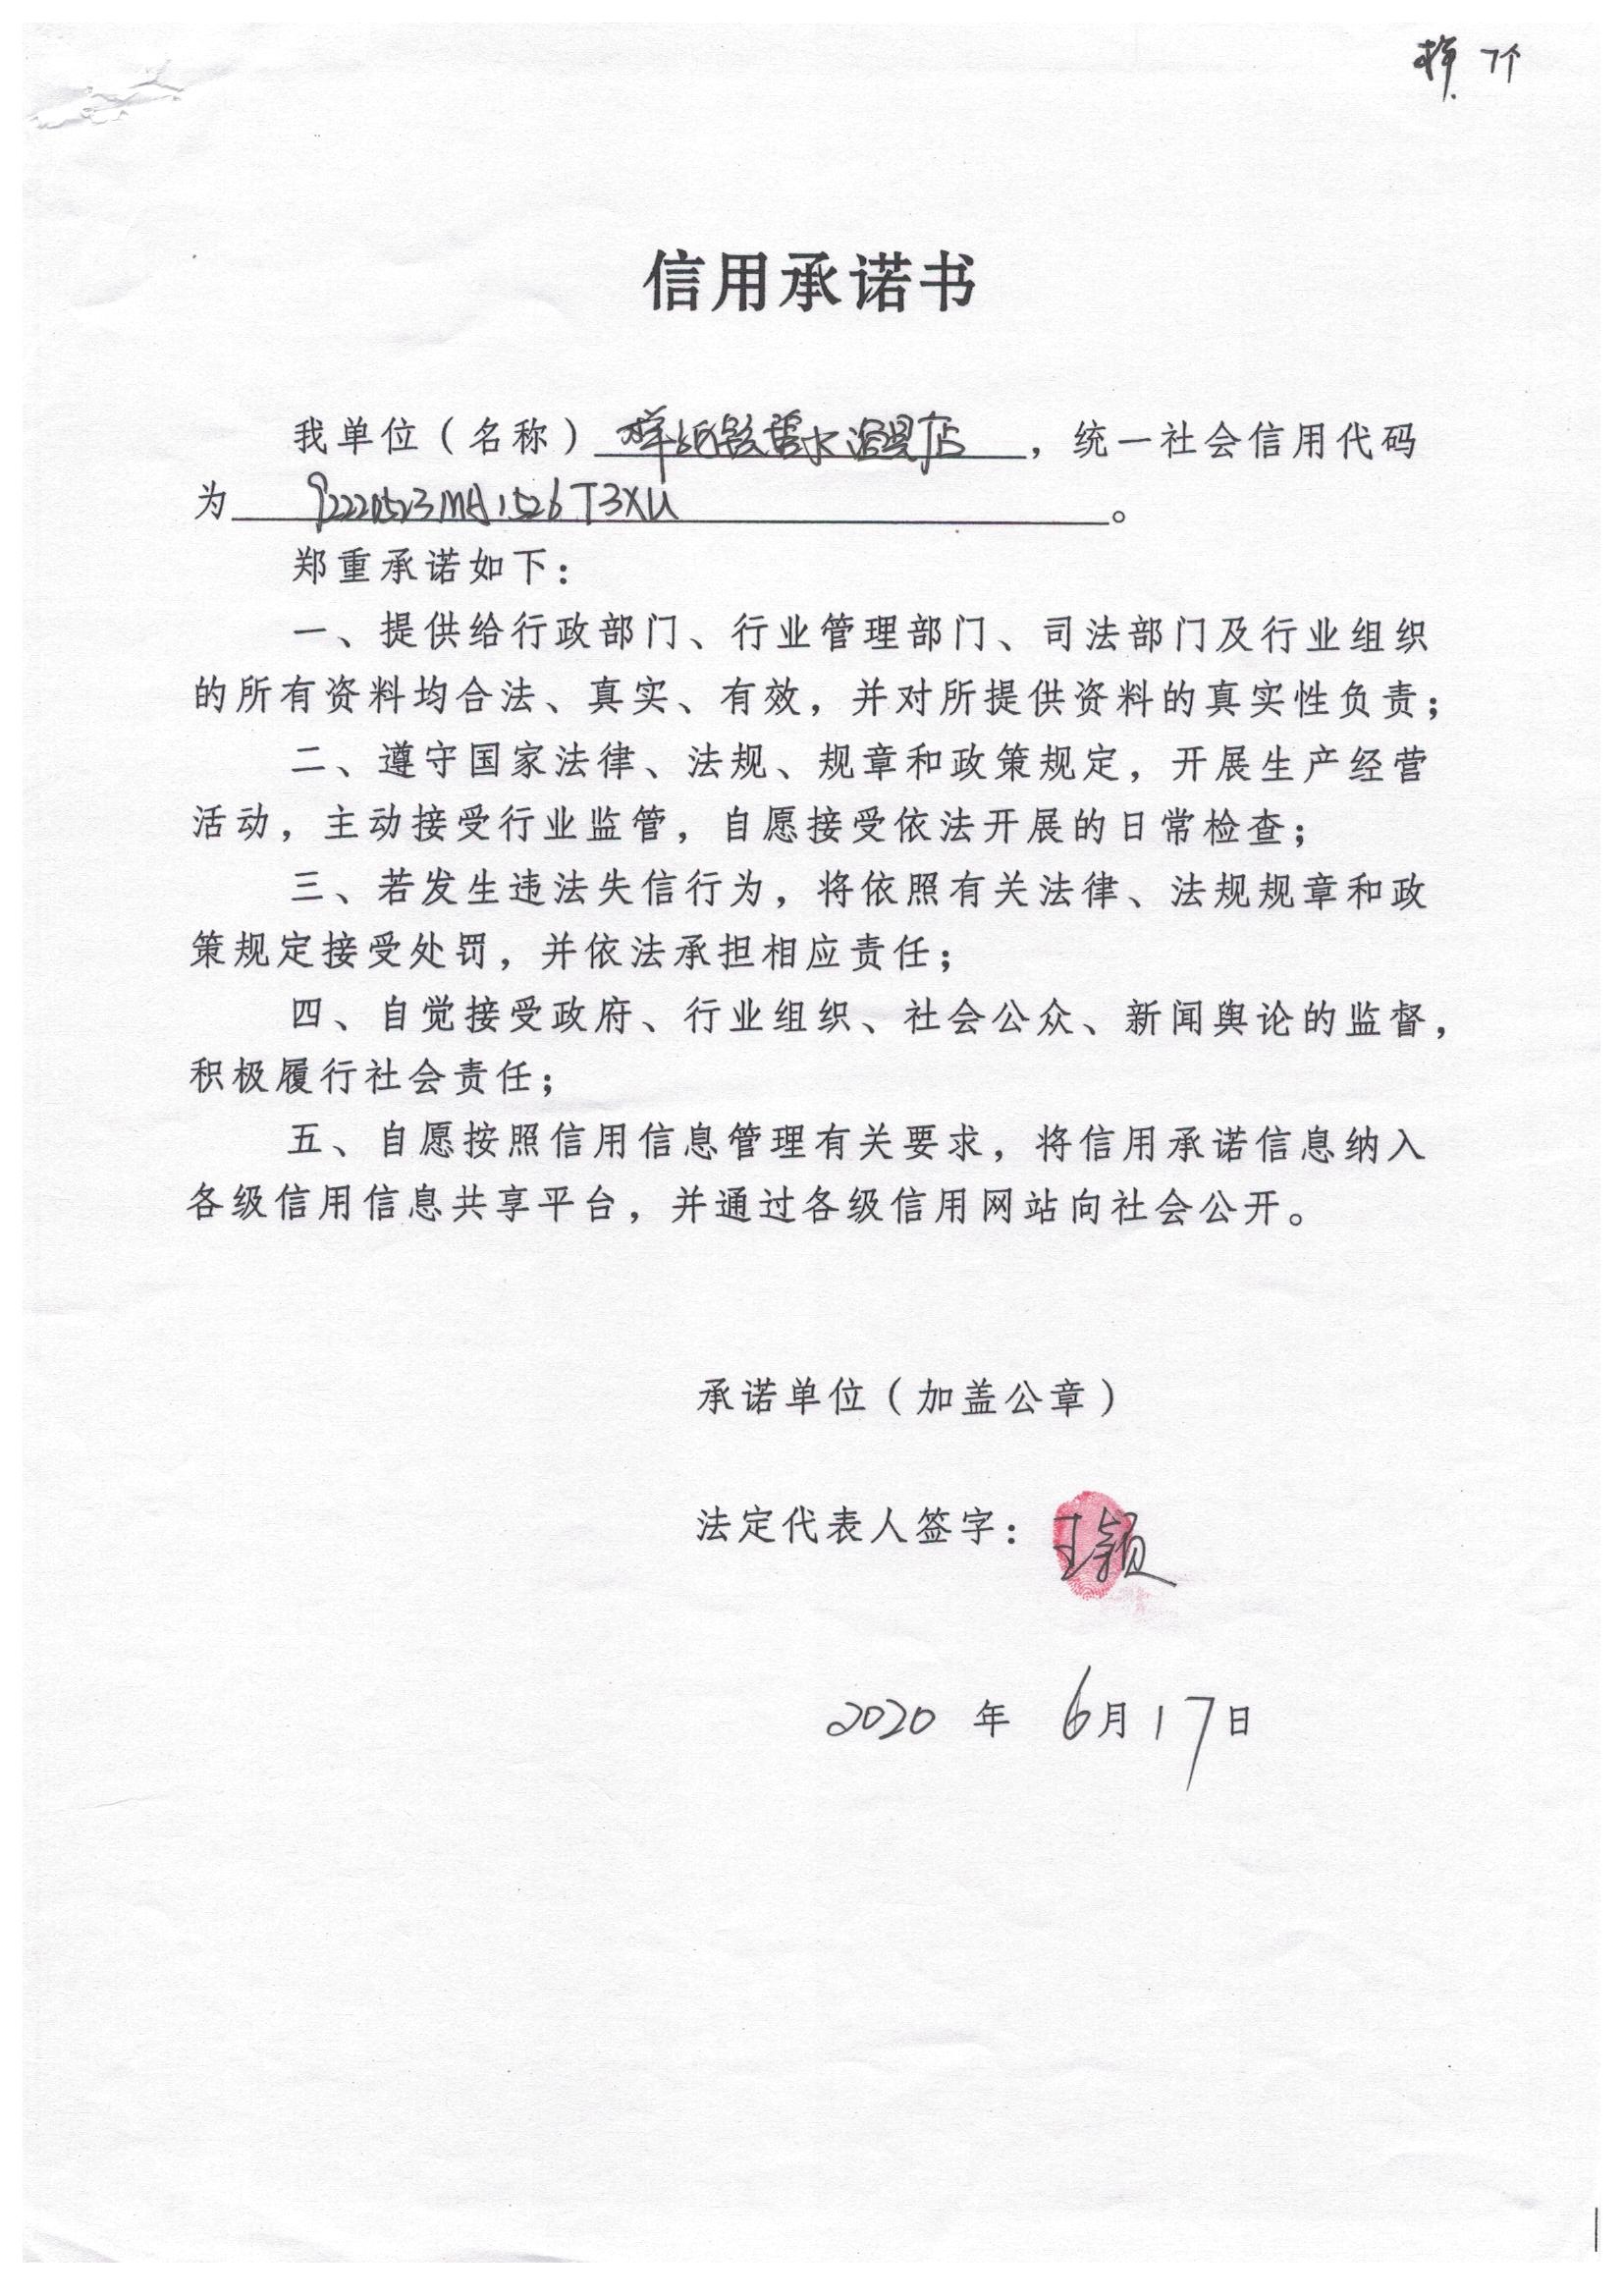 7个
信用承诺书
我单位（名称），统一社会信用代码
为 92220523MA1526T3XU。
郑重承诺如下：
一、提供给行政部门、行业管理部门、司法部门及行业组织
的所有资料均合法、真实、有效，并对所提供资料的真实性负责；
二、遵守国家法律、法规、规章和政策规定，开展生产经营
活动，主动接受行业监管，自愿接受依法开展的日常检查；
三、若发生违法失信行为，将依照有关法律、法规规章和政
策规定接受处罚，并依法承担相应责任；
四、自觉接受政府、行业组织、社会公众、新闻舆论的监督，
积极履行社会责任；
五、自愿按照信用信息管理有关要求，将信用承诺信息纳入
各级信用信息共享平台，并通过各级信用网站向社会公开。
承诺单位（加盖公章）
法定代表人签字：王颖
2020 年 6月17日